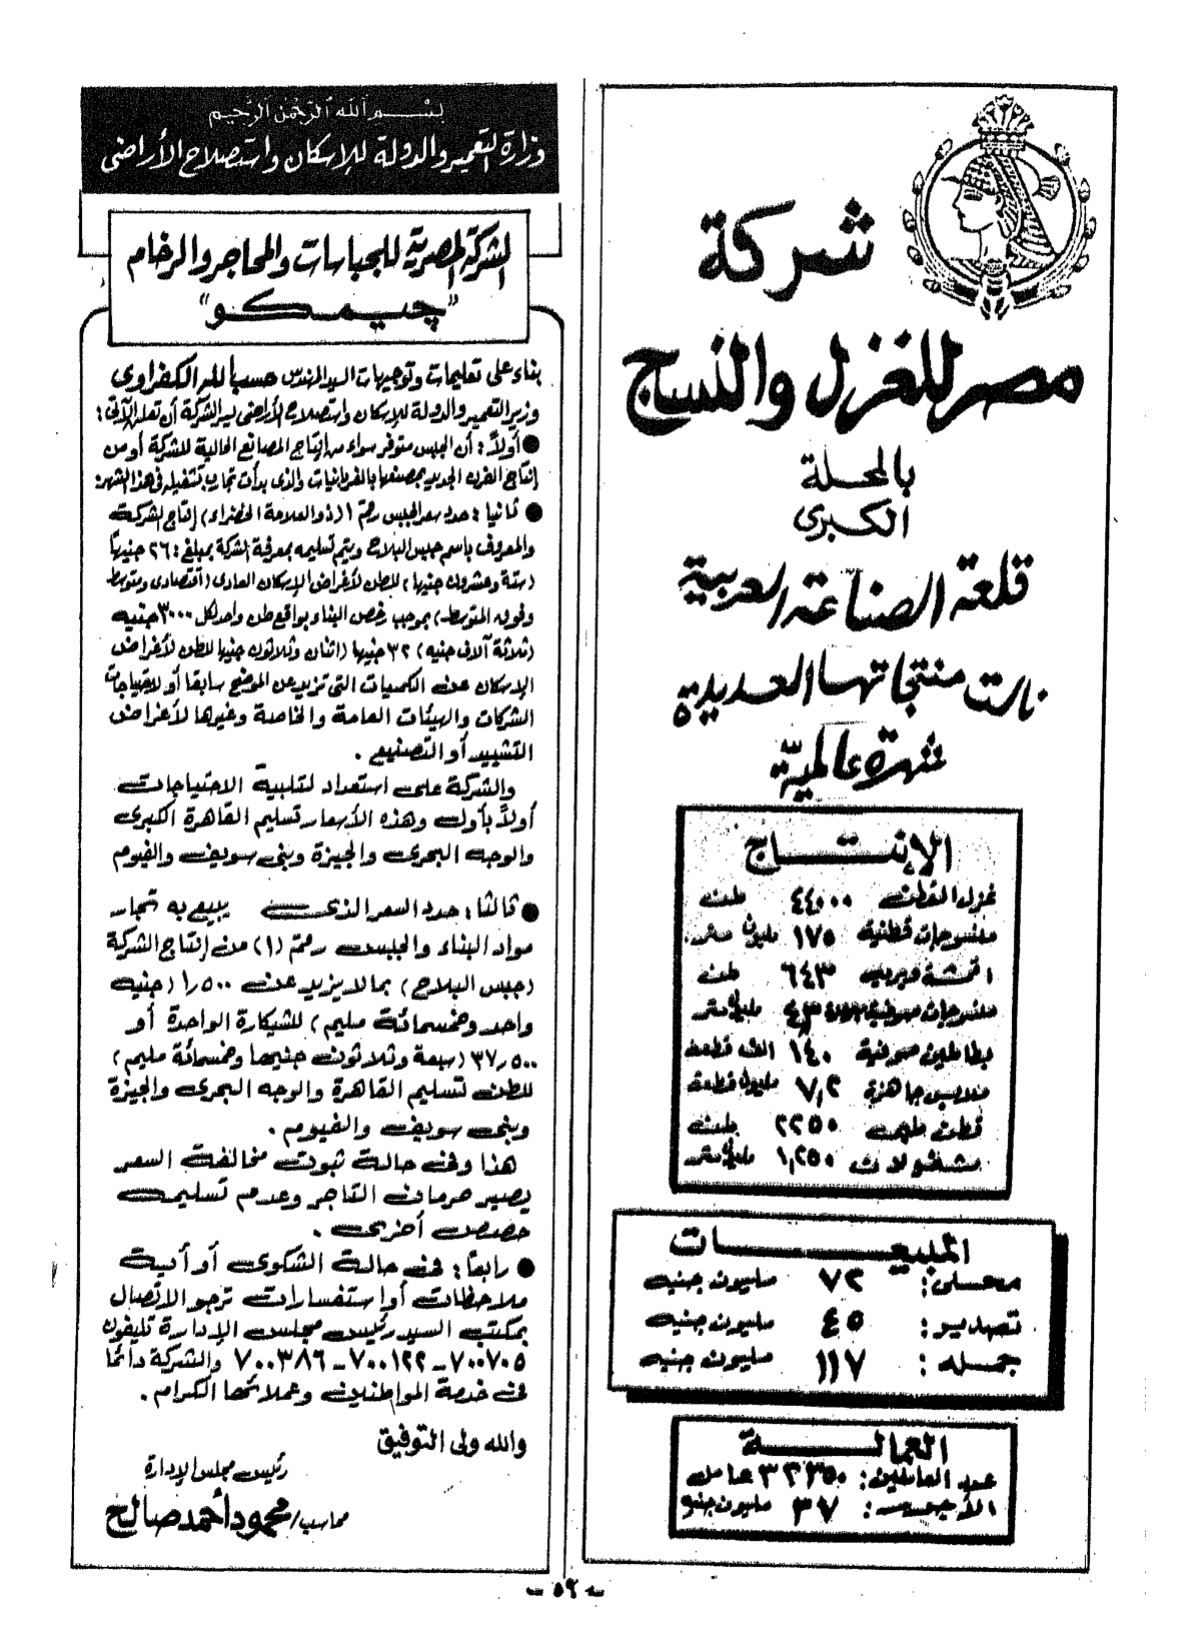 شركة
مصر للغزل والنسيج
بالمحلة
الكبرى
قلعة الصناعة العربية
نالت منتجاتها العديدة
شهرة عالمية
الإنتـــاج
غزل القطن ٤٤٠٠٠ طن
منسوجات قطنية ١٧٥ مليون متر
اقمشة وبريات ٦٤٣ طن
منسوجات صوفية مليون متر
بطاطين صوفية ١٤٠ الف قطعة
ملابس جاهزة ٧,٢ مليون قطعة
قطن طبى ٢٢٥٠ طن
مشغولات ١,٢٥٠ مليون متر
المبيعــــــات
محلى : ٧٢ مليون جنيه
تصدير : ٤٥ مليون جنيه
جملة : ١١٧ مليون جنيه
العمالـــة
عدد العاملين : ٣٣٣٥٠ عامل
الأجور : ٣٧ مليون جنيه
بسم الله الرحمن الرحيم
وزارة التعمير والدولة للإسكان واستصلاح الأراضى
الشركة المصرية للجباسات والمحاجر والرخام
"چيمكو"
بناء على تعليمات وتوجيهات السيد المهندس حسب الله الكفراوى
وزير التعمير والدولة للإسكان واستصلاح الأراضى يسر الشركة أن تعلن الآتى :
● أولاً : أن الجبس متوفر سواء من إنتاج المصانع الحالية للشركة أو من
إنتاج الفرن الجديد بمصنعها بالغربانيات والذى بدأت تجارب تشغيله فى هذا الشهر.
● ثانيا : حدد سعر الجبس رقم ١ (ذو العلامة الخضراء) إنتاج الشركة
والمعروف باسم جبس البلاح ويتم تسليمه بمعرفة الشركة بمبلغ : ٢٦ جنيهاً
(ستة وعشرون جنيها) للطن لأغراض الإسكان العادى (اقتصادى ومتوسط
وفوق المتوسط) بموجب رخص البناء بواقع طن واحد لكل ٣٠٠٠ جنيه
(ثلاثة آلاف جنيه) ٣٢ جنيها (اثنان وثلاثون جنيها للطن لأغراض
الإسكان عن الكميات التى تزيد عن الموضح سابقا أو لاحتياجات
الشركات والهيئات العامة والخاصة وغيرها لأغراض
التشييد أو التصنيع .
والشركة على استعداد لتلبية الاحتياجات
أولاً بأول وهذه الأسعار تسليم القاهرة الكبرى
والوجه البحرى والجيزة وبنى سويف والفيوم
● ثالثا : حدد السعر الذى يبيع به تجار
مواد البناء والجبس رقم (١) من إنتاج الشركة
(جبس البلاح) بما لا يزيد عن ١٫٥٠٠ (جنيه
واحد وخمسمائة مليم) للشيكارة الواحدة أو
٣٧٫٥٠٠ (سبعة وثلاثون جنيها وخمسمائة مليم)
للطن لتسليم القاهرة والوجه البحرى والجيزة
وبنى سويف والفيوم .
هذا وفى حالة ثبوت مخالفة السعر
يصير حرمان التاجر وعدم تسليمه
حصص أخرى .
● رابعا : فى حالة الشكوى أو أية
ملاحظات أو استفسارات نرجو الاتصال
بمكتب السيد رئيس مجلس الإدارة تليفون
٧٠٠٧٠٥ - ٧٠٠١٢٢ - ٧٠٠٣٨٦ والشركة دائما
فى خدمة المواطنين وعملائها الكرام .
والله ولى التوفيق
رئيس مجلس الإدارة
محاسب / محمود أحمد صالح
- ٥٩ -